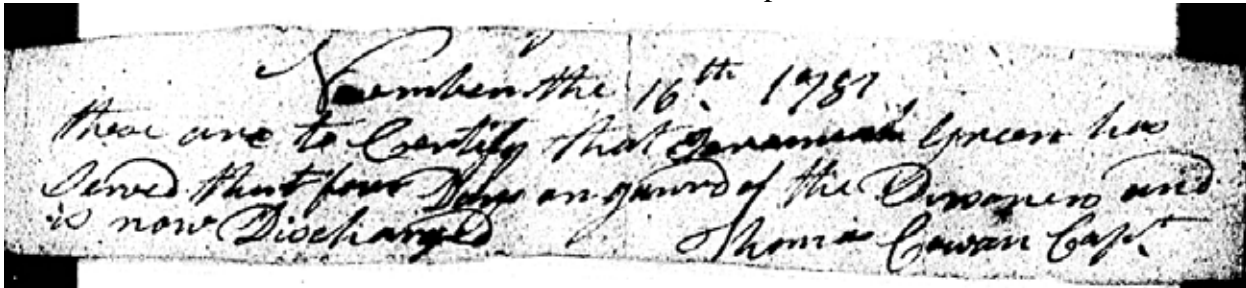 November the 16th 1781
these are to Certify that Jeremiah Green has
Served thurt four Days on guard of the Prisoners and
is now Discharged Thomas Cowan Capt